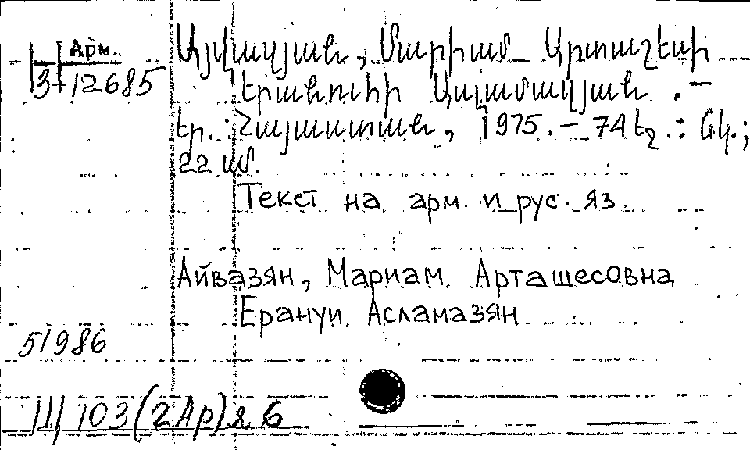 Арм.
3-12685
Այվազյան, Մարիամ Արտաշեսի
Երանուհի Ասլամազյան . —
Եր. : Հայաստան, 1975. — 74 էջ. : նկ.;
22 սմ.
Текст на арм. и рус. яз.
Айвазян, Мариам Арташесовна
Ерануи Асламазян
51986
Щ103(2Ар)я6